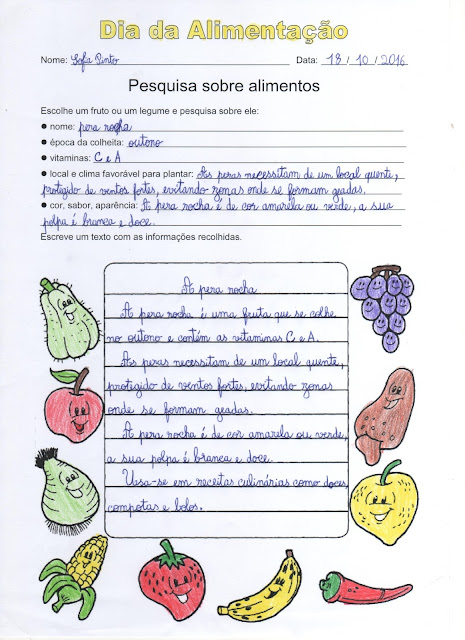 Dia da Alimentação
Nome: Sofia Pinto Data: 18 / 10 / 2016
Pesquisa sobre alimentos
Escolhe um fruto ou um legume e pesquisa sobre ele:
● nome: pera rocha
● época da colheita: outono
● vitaminas: C e A
● local e clima favorável para plantar: As peras necessitam de um local quente,
protegido de ventos fortes, evitando zonas onde se formam geadas.
● cor, sabor, aparência: A pera rocha é de cor amarela ou verde, a sua
polpa é branca e doce.
Escreve um texto com as informações recolhidas.
A pera rocha
A pera rocha é uma fruta que se colhe
no outono e contém as vitaminas C e A.
As peras necessitam de um local quente,
protegido de ventos fortes, evitando zonas
onde se formam geadas.
A pera rocha é de cor amarela ou verde,
a sua polpa é branca e doce.
Usa-se em receitas culinárias como doces,
compotas e bolos.